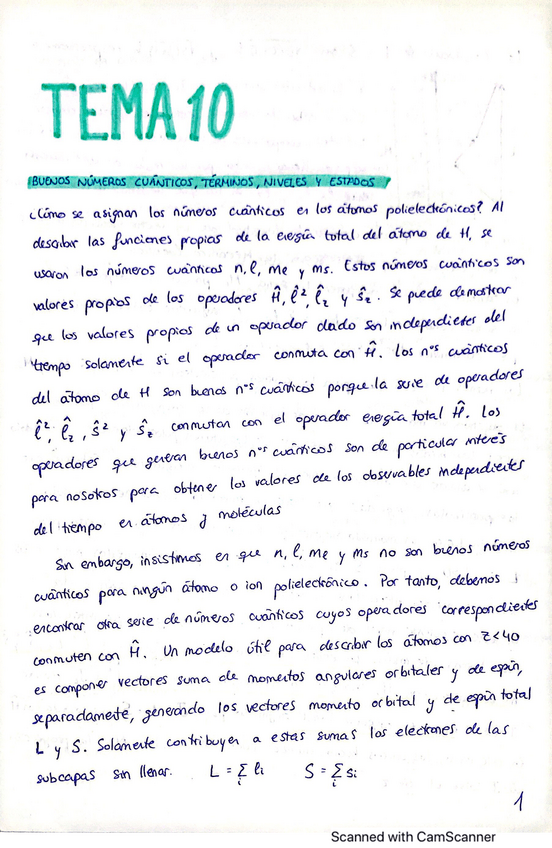 TEMA 10
BUENOS NÚMEROS CUÁNTICOS, TÉRMINOS, NIVELES Y ESTADOS
¿Cómo se asignan los números cuánticos en los átomos polielectrónicos? Al
describir las funciones propias de la energía total del átomo de H, se
usaron los números cuánticos n, l, me y ms. Estos números cuánticos son
valores propios de los operadores Ĥ, l̂², l̂z y ŝz. Se puede demostrar
que los valores propios de un operador dado son independientes del
tiempo solamente si el operador conmuta con Ĥ. Los nºs cuánticos
del átomo de H son buenos nºs cuánticos porque la serie de operadores
l̂², l̂z, ŝ² y ŝz conmutan con el operador energía total Ĥ. Los
operadores que generan buenos nºs cuánticos son de particular interés
para nosotros para obtener los valores de los observables independientes
del tiempo en átomos y moléculas
Sin embargo, insistimos en que n, l, me y ms no son buenos números
cuánticos para ningún átomo o ion polielectrónico. Por tanto, debemos
encontrar otra serie de números cuánticos cuyos operadores correspondientes
conmuten con Ĥ. Un modelo útil para describir los átomos con Z<40
es componer vectores suma de momentos angulares orbitales y de espín,
separadamente, generando los vectores momento orbital y de espín total
L y S. Solamente contribuyen a estas sumas los electrones de las
subcapas sin llenar. L = Σi li S = Σi si
1
Scanned with CamScanner